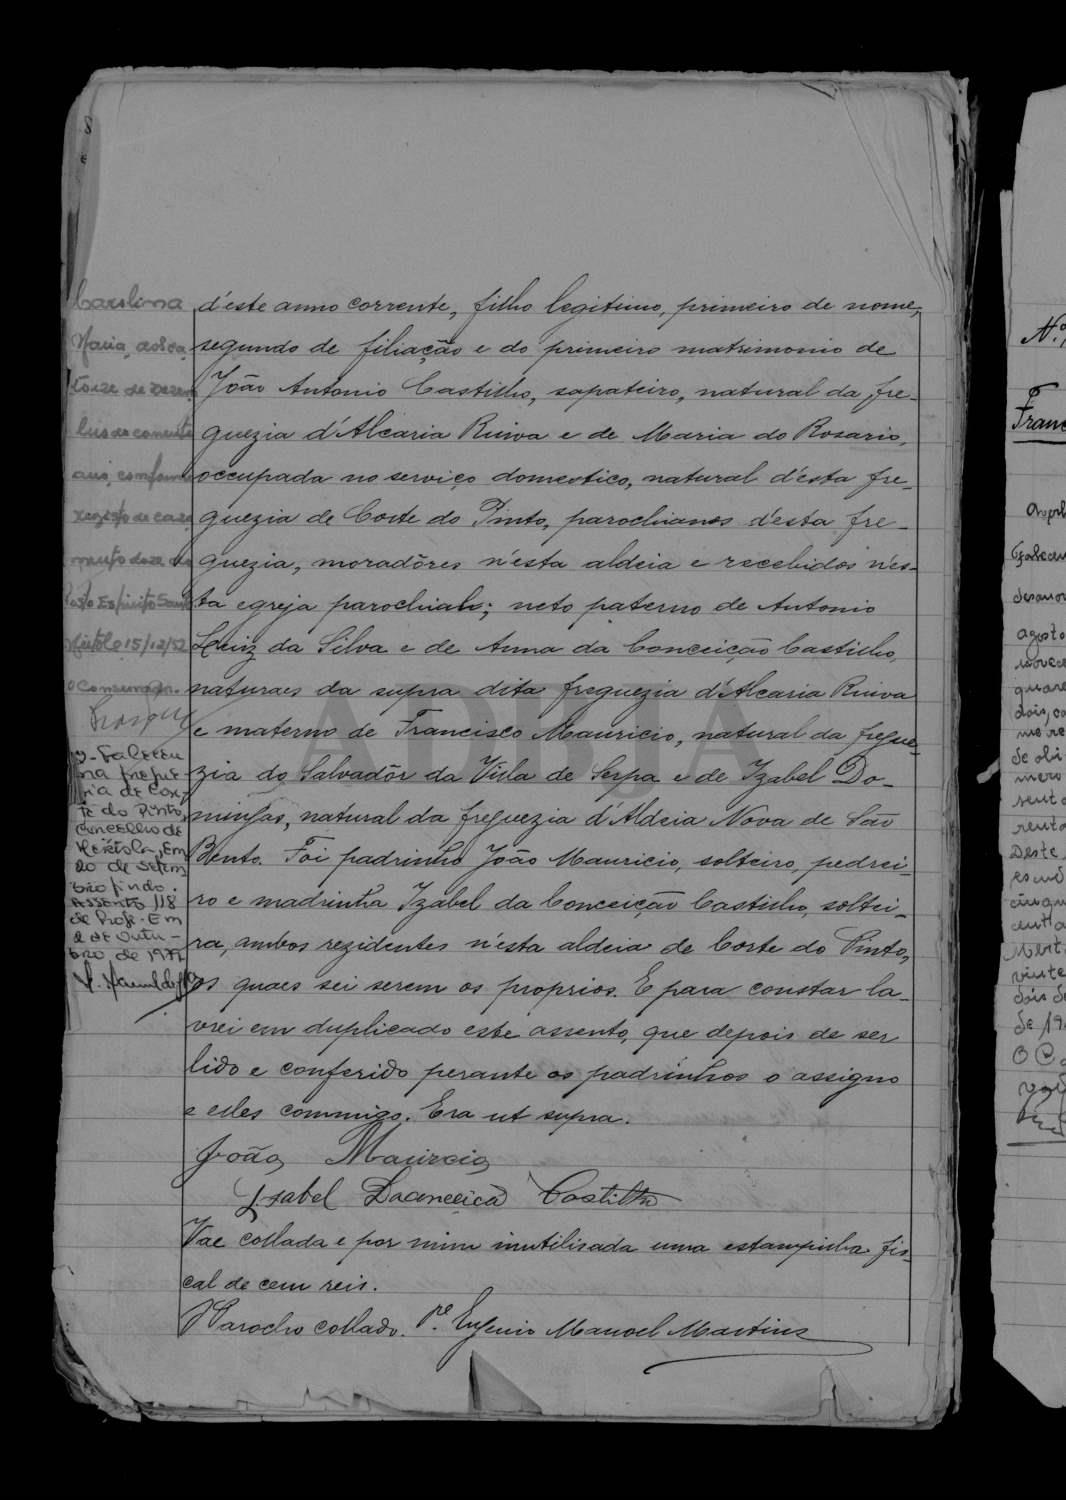 Carolina
Maria, aos ca
torze de Dezem
bro do corrente
ano, conforme
registo de casa
mento doze do
Posto Espirito Santo
Mértola 15/12/52
O Conservador.
2- Faleceu
na fregue
sia de Cor-
te do Pinto,
concelho de
Mértola, em
20 de Setem
bro findo.
Assento 118
de Prof. Em
2 de Outu-
bro de 1977
d'este anno corrente, filho legitimo, primeiro de nome,
segundo de filiação e do primeiro matrimonio de
João Antonio Castilho, sapateiro, natural da fre-
guezia d'Alcaria Ruiva e de Maria do Rosario,
occupada no serviço domestico, natural d'esta fre-
guezia de Corte do Pinto, parochianos d'esta fre-
guezia, moradôres n'esta aldeia e recebidos n'es-
ta egreja parochial; neto paterno de Antonio
Luiz da Silva e de Anna da Conceição Castilho,
naturaes da supra dita freguezia d'Alcaria Ruiva
e materno de Francisco Mauricio, natural da fregue-
zia do Salvadôr da Villa de Serpa e de Izabel Do-
mingas, natural da freguezia d'Aldeia Nova de São
Bento. Foi padrinho João Mauricio, solteiro, pedrei-
ro e madrinha Izabel da Conceição Castilho, soltei-
ra, ambos rezidentes n'esta aldeia de Corte do Pinto,
os quaes sei serem os proprios. E para constar la-
vrei em duplicado este assento, que depois de ser
lido e conferido perante os padrinhos o assigno
e elles commigo. Era ut supra.
João Maurcio
Isabel Daconceicã Castilho
Vae collada e por mim inutilisada uma estampilha fis-
cal de cem reis.
O Parocho collado. Pe. Eugenio Manoel Martins
ADBJA
Nº
Franc
agosto
quare
dois, co
de obi
mero
Deste
Mert
vinte
dois de
de 19
O C